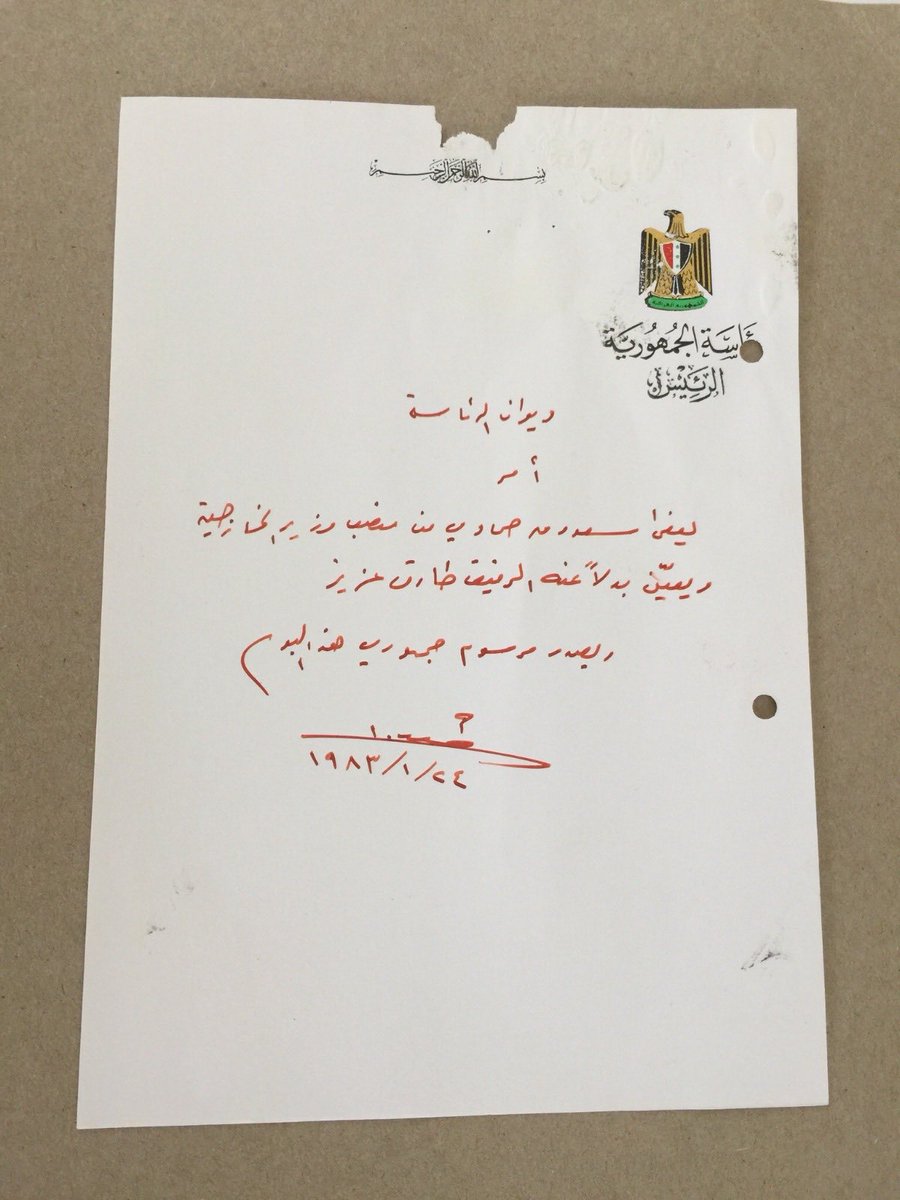 بسم الله الرحمن الرحيم
رئاسة الجمهورية
الرئيس
ديوان الرئاسة
أمر
يعفى سعدون حمادي من منصب وزير الخارجية
ويعيّن بدلاً عنه الرفيق طارق عزيز
ويصدر مرسوم جمهوري هذا اليوم
١٩٨٣/١/٢٤